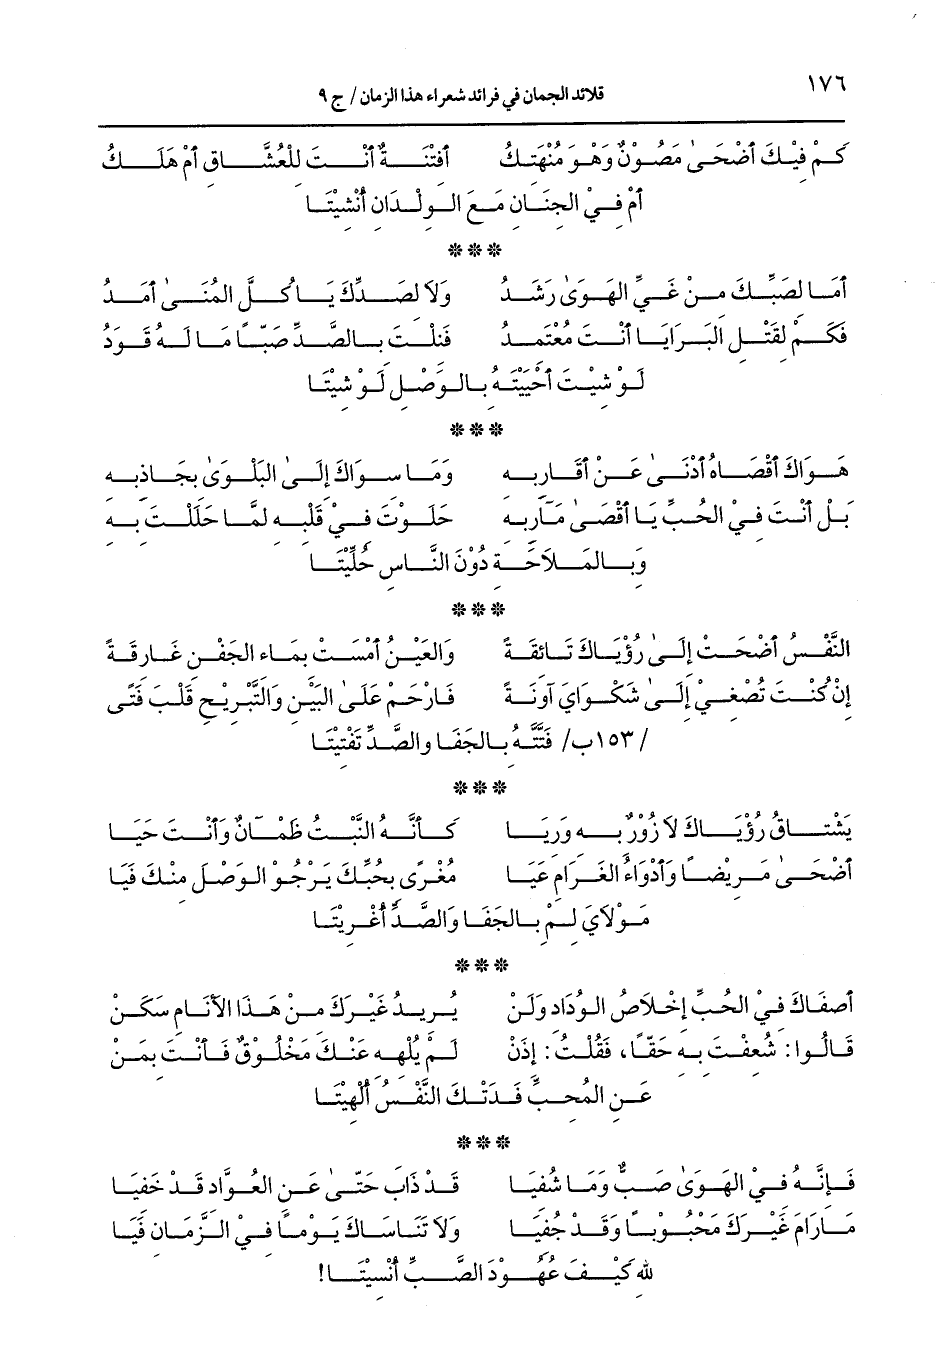 ١٧٦
قلائد الجمان في فرائد شعراء هذا الزمان / ج ٩
كَمْ فِيْكَ أضْحَىٰ مَصُونٌ وَهْوَ مُنْهَتِكُ أفِتْنَةٌ أنْتَ لِلْعُشَّاقِ أم هَلَكُ
أمْ فِيْ الجِنَانِ مَعَ الوِلْدَانِ أُنْشِيْتَا
***
أمَا لِصَبِّكَ مِنْ غَيِّ الهَوَىٰ رَشَدُ وَلَا لِصَدِّكَ يَا كُلَّ المُنَىٰ أمَدُ
فَكَمْ لِقَتْلِ البَرَايَا أنْتَ مُعْتَمِدُ فَتَلْتَ بِالصَّدِّ صَبّاً مَا لَهُ قَوَدُ
لَوْ شِيْتَ أحْيَيْتَهُ بِالوَصْلِ لَوْ شِيْتَا
***
هَوَاكَ أقْصَاهُ أدْنَىٰ عَنْ أقَارِبِهِ وَمَا سِوَاكَ إلَىٰ البَلْوَىٰ بِجَاذِبِهِ
بَلْ أنْتَ فِيْ الحُبِّ يَا أقْصَىٰ مَآرِبِهِ حَلَوْتَ فِيْ قَلْبِهِ لَمَّا حَلَلْتَ بِهِ
وَبِالمَلَاحَةِ دُوْنَ النَّاسِ حُلِّيْتَا
***
النَّفْسُ أضْحَتْ إلَىٰ رُؤْيَاكَ تَائِقَةً وَالعَيْنُ أمْسَتْ بِمَاءِ الجَفْنِ غَارِقَةً
إنْ كُنْتَ تُصْغِيْ إلَىٰ شَكْوَايَ آوِنَةً فَارْحَمْ عَلَىٰ البَيْنِ وَالتَّبْرِيْحِ قَلْبَ فَتًى
/١٥٣ب/ فَتَّتَّهُ بِالجَفَا وَالصَّدِّ تَفْتِيْتَا
***
يَشْتَاقُ رُؤْيَاكَ لَا زُوْرٌ بِهِ وَرِيَا كَأنَّهُ النَّبْتُ ظَمْآنٌ وَأنْتَ حَيَا
أضْحَىٰ مَرِيْضاً وَأدْوَاءُ الغَرَامِ عَيَا مُغْرًى بِحُبِّكَ يَرْجُو الوَصْلَ مِنْكَ فَيَا
مَوْلَايَ لِمْ بِالجَفَا وَالصَّدِّ أغْرِيْتَا
***
أصْفَاكَ فِيْ الحُبِّ إخْلَاصَ الوِدَادِ وَلَنْ يُرِيْدَ غَيْرَكَ مِنْ هَذَا الأنَامِ سَكَنْ
قَالُوا: شُغِفْتَ بِهِ حَقّاً، فَقُلْتُ: إذَنْ لَمْ يُلْهِهِ عَنْكَ مَخْلُوْقٌ فَأنْتَ بِمَنْ
عَنِ المُحِبِّ فَدَتْكَ النَّفْسُ أُلْهِيْتَا
***
فَإنَّهُ فِيْ الهَوَىٰ صَبٌّ وَمَا شُفِيَا قَدْ ذَابَ حَتَّىٰ عَنِ العُوَّادِ قَدْ خَفِيَا
مَا رَامَ غَيْرَكَ مَحْبُوْباً وَقَدْ جُفِيَا وَلَا تَنَاسَاكَ يَوْماً فِيْ الزَّمَانِ فَيَا
للهِ كَيْفَ عُهُوْدَ الصَّبِّ أُنْسِيْتَا!